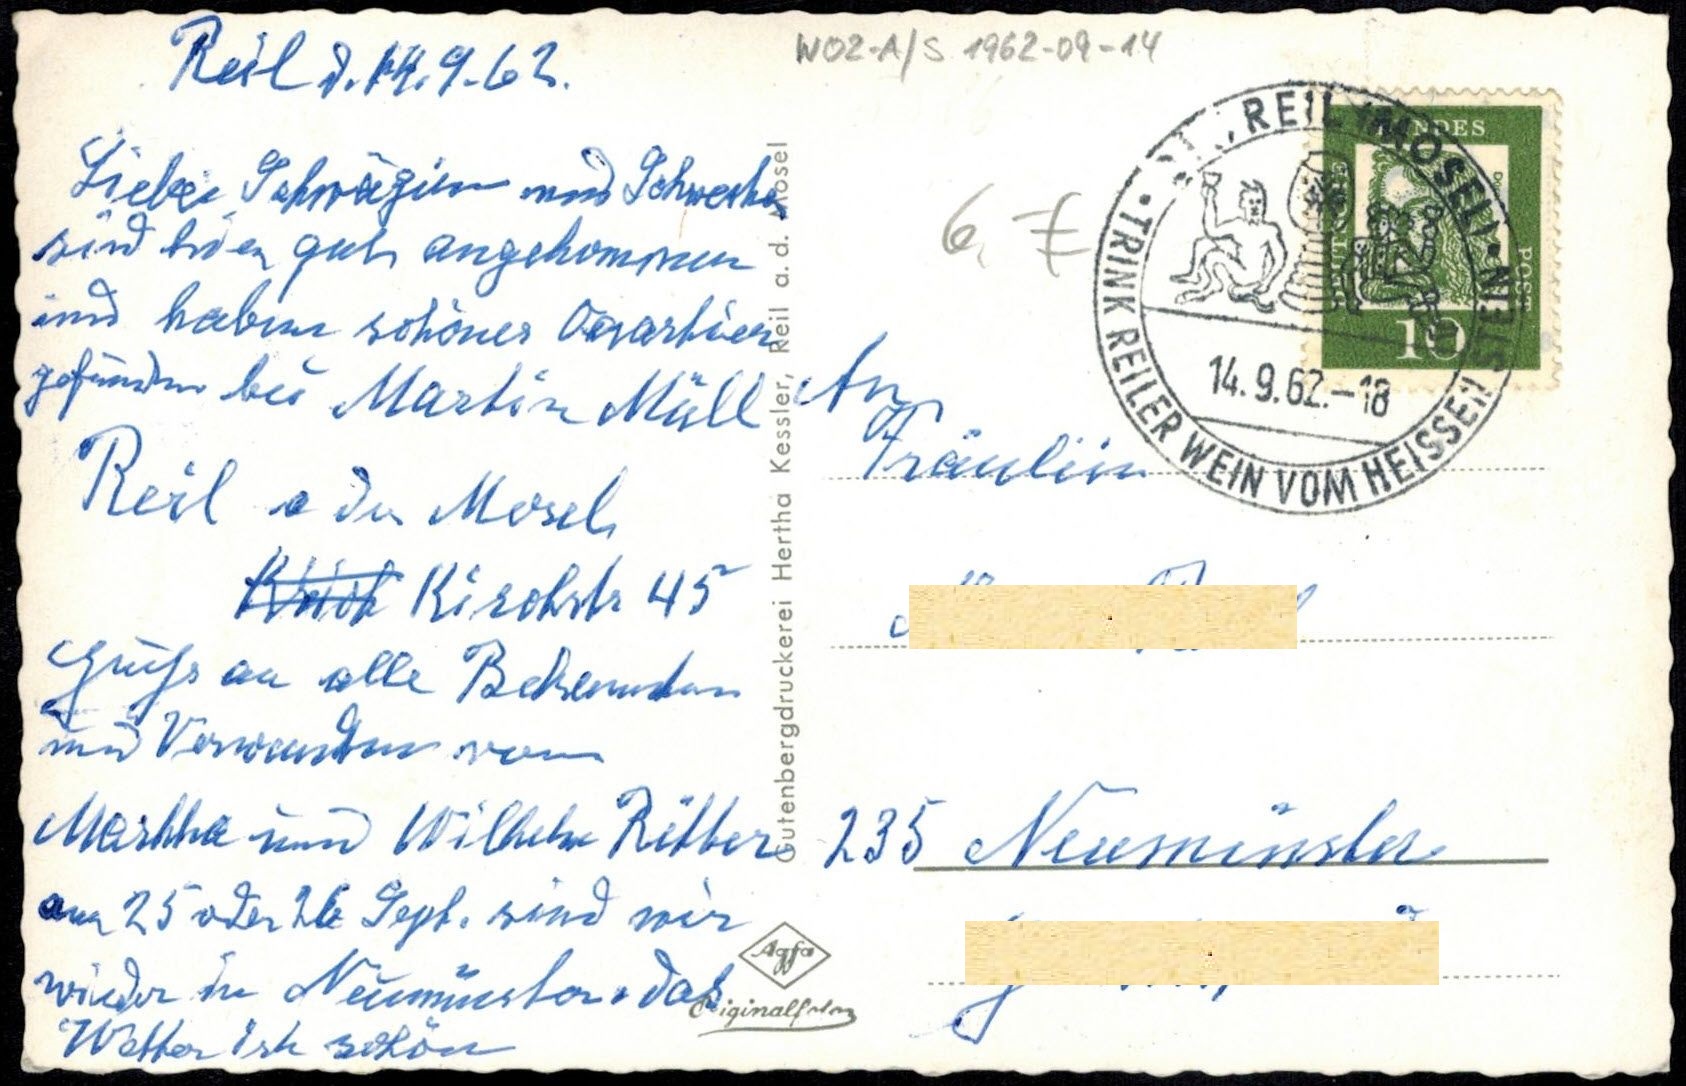 Reil d. 14.9.62.
Liebe Schwägerin und Schwester
sind hier gut angekommen
und haben schönes Quartier
gefunden bei Martin Müll
Reil a der Mosel
Kirchstr 45
Gruß an alle Bekannten
und Verwandten von
Martha und Wilhelm Ritter
am 25 oder 26 Sept. sind wir
wieder in Neumünster. das
Wetter ist schön
Gutenbergdruckerei Hertha Kessler, Reil a. d. Mosel
Agfa
Originalfoto
W02-A/S 1962-09-14
REIL (MOSEL)
TRINK REILER WEIN VOM HEISSEN STEIN
14.9.62.-18
DEUTSCHE
BUNDES
POST
10
An
Fräulein
235 Neumünster